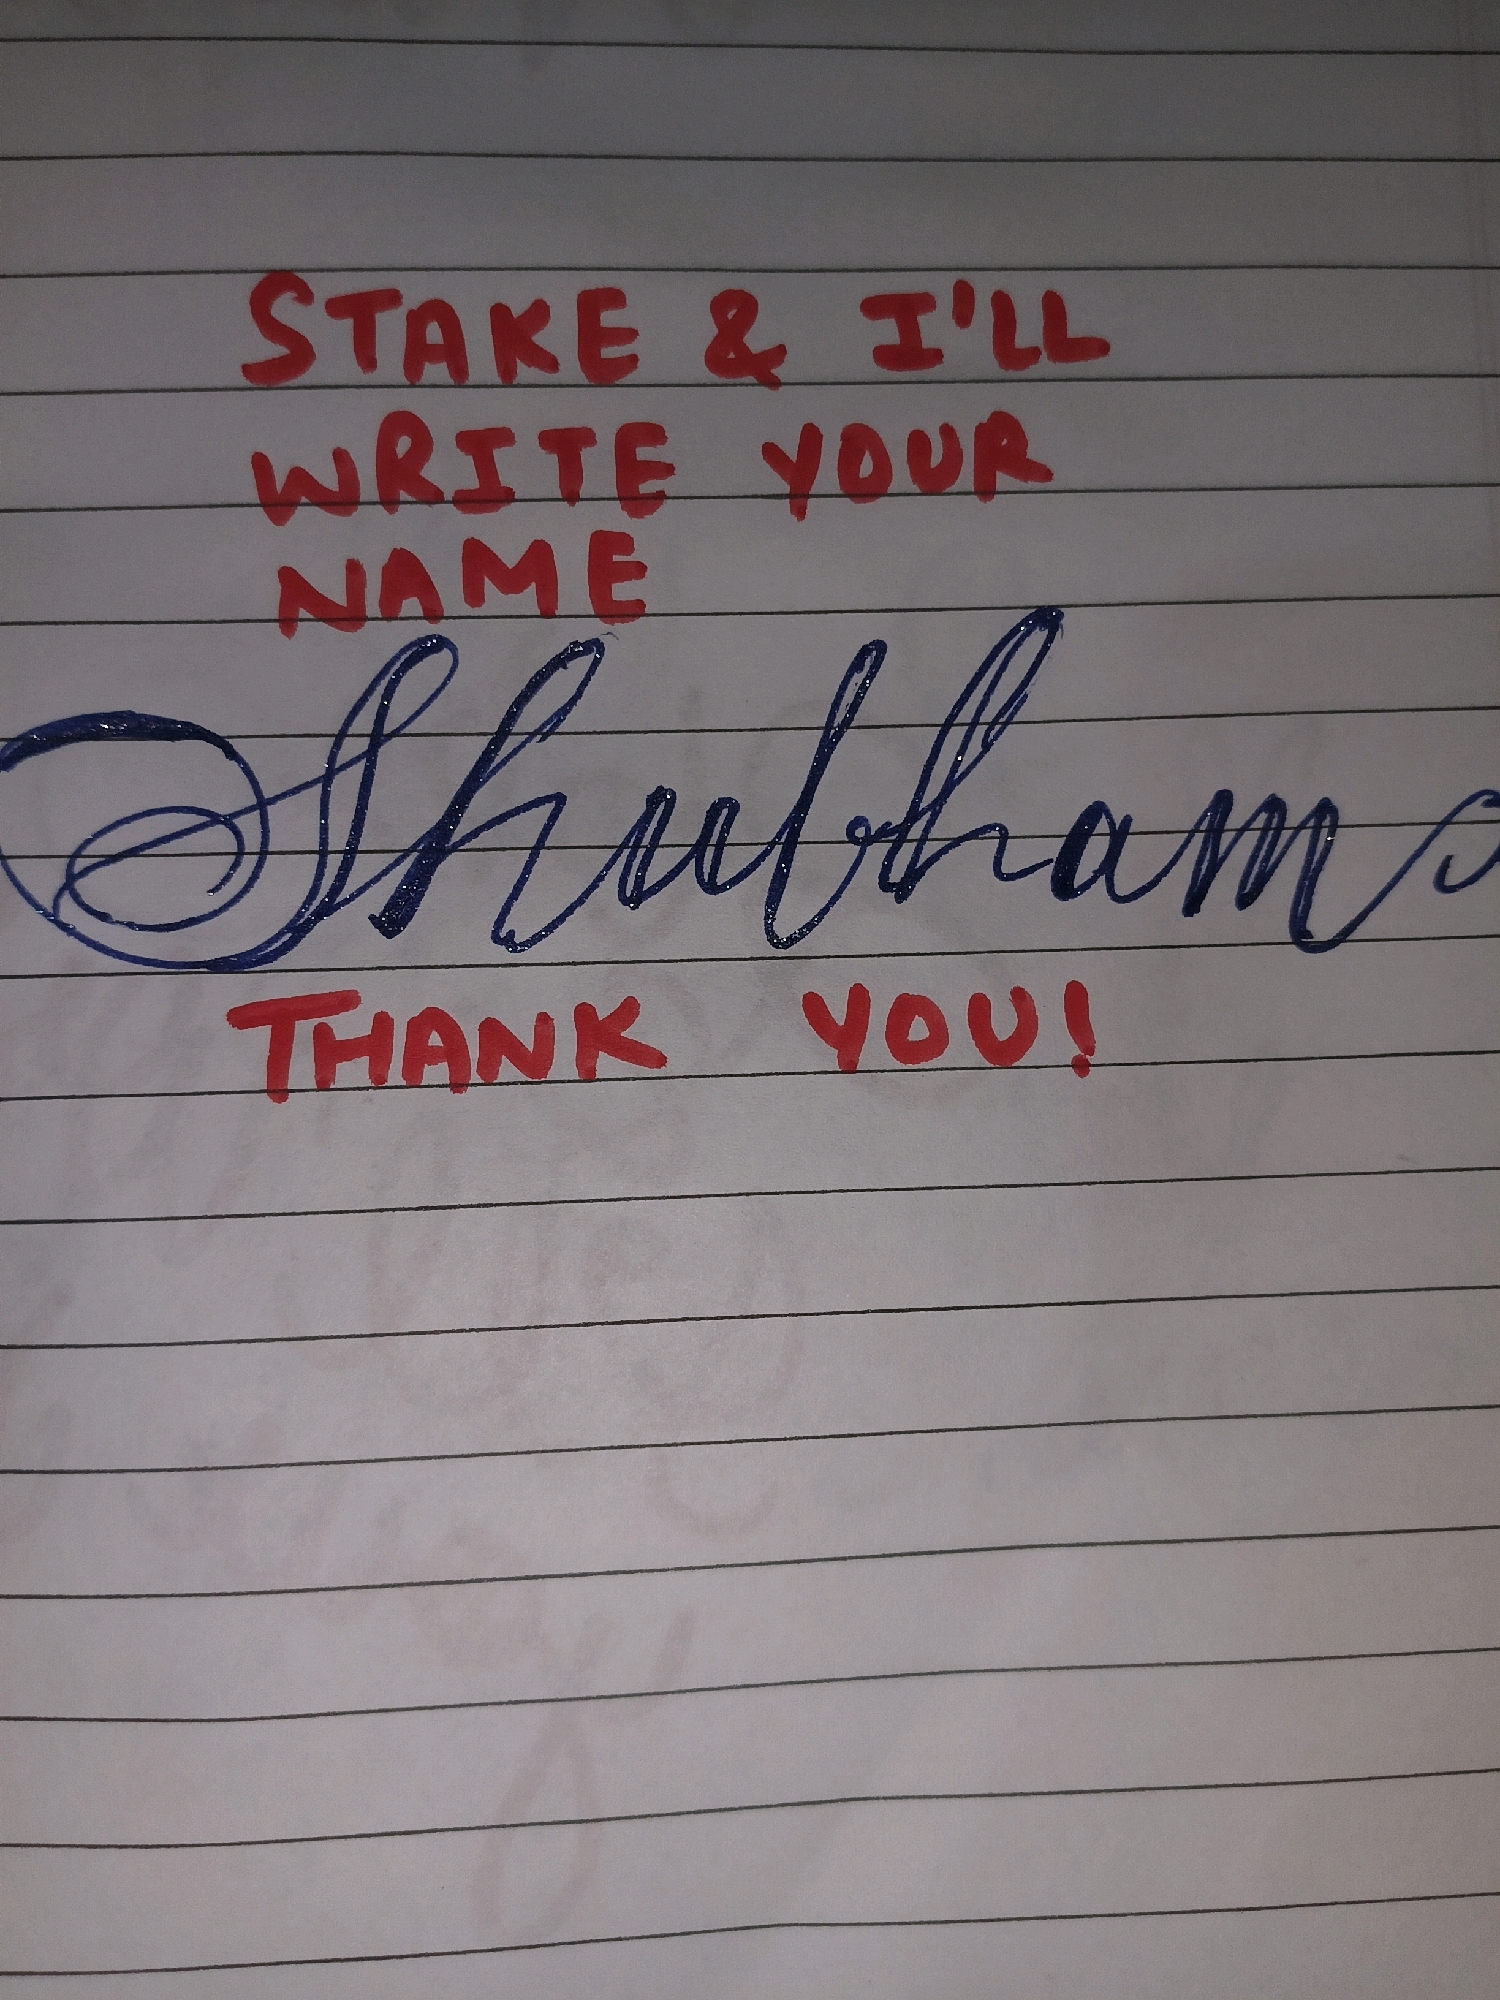 STAKE & I'LL
WRITE YOUR
NAME
Shubham
THANK YOU!